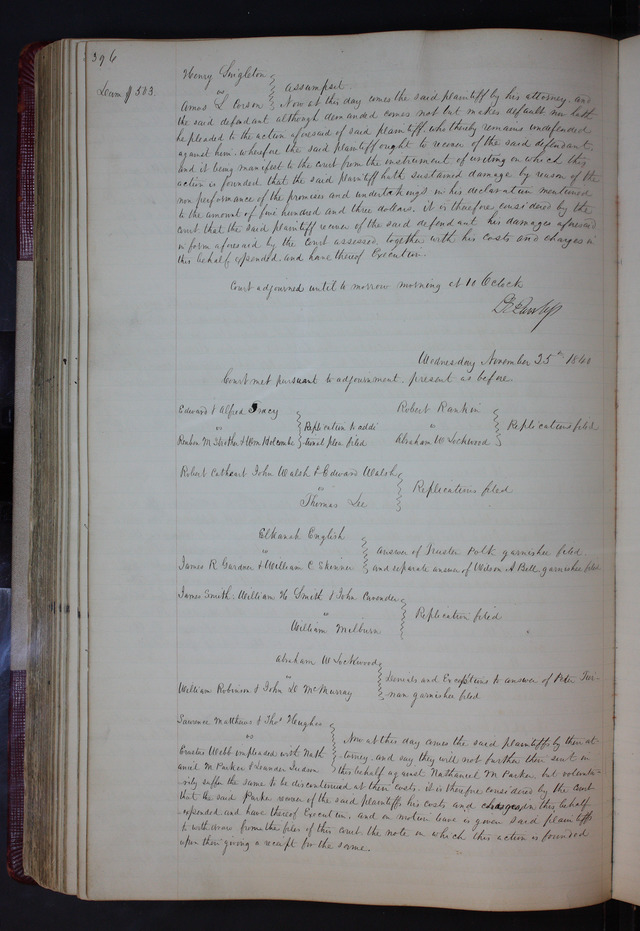 396
Henry Singleton
Dam $503.
vs
assumpsit
Amos L Corson
Now at this day comes the said plaintiff by his attorney. and
the said defendant although demanded comes not but makes default nor hath
he pleaded to the action aforesaid of said plaintiff. who thereby remains undefended
against him. wherefore the said plaintiff ought to recover of the said defendant.
and it being manifest to the court from the instrument of writing on which this
action is founded that the said plaintiff hath sustained damage by reason of the
non performance of the promises and undertakings in his declaration mentioned
to the amount of five hundred and three dollars. it is therefore considered by the
court that the said plaintiff recover of the said defendant his damages aforesaid
in form aforesaid by the court assessed. together with his costs and charges in
this behalf expended. and have thereof Execution.
Court adjourned until to morrow morning at 10 OClock
Wednesday November 25th 1840
Court met pursuant to adjournment. present as before
Edward & Alfred Tracy
vs
Reuben M Strother & Wm Holcombe
Replication to addi
tional plea filed
Robert Rankin
vs
Abraham W Lockwood
Replications filed
Robert Cathcart John Walsh & Edward Walsh
vs
Thomas Lee
Replications filed
Elkanah English
vs
James R Gardner & William C Skinner
answer of Trusten Polk garnishee filed
and separate answer of Wilson A Bell garnishee filed
James Smith. William H Smith & John Cavender
vs
William Milburn
Replication filed
Abraham W Lockwood
vs
William Robinson & John D McMurray
Denials and Exceptions to answer of Peter
garnishee filed
Lawrence Matthews & Thos Hughes
vs
Erastus Webb impleaded with Nath
aniel M Parker & Leander
Now at this day comes the said plaintiffs by their at
torney. and say they will not further their suit in
this behalf against Nathaniel M Parker. but volunta
rily suffer the same to be discontinued at their costs. it is therefore considered by the Court
that the said Parker recover of the said plaintiffs his costs and charges in this behalf
expended. and have thereof Execution. and on motion leave is given said plaintiffs
to withdraw from the files of this court the note on which this action is founded
upon their giving a receipt for the same.